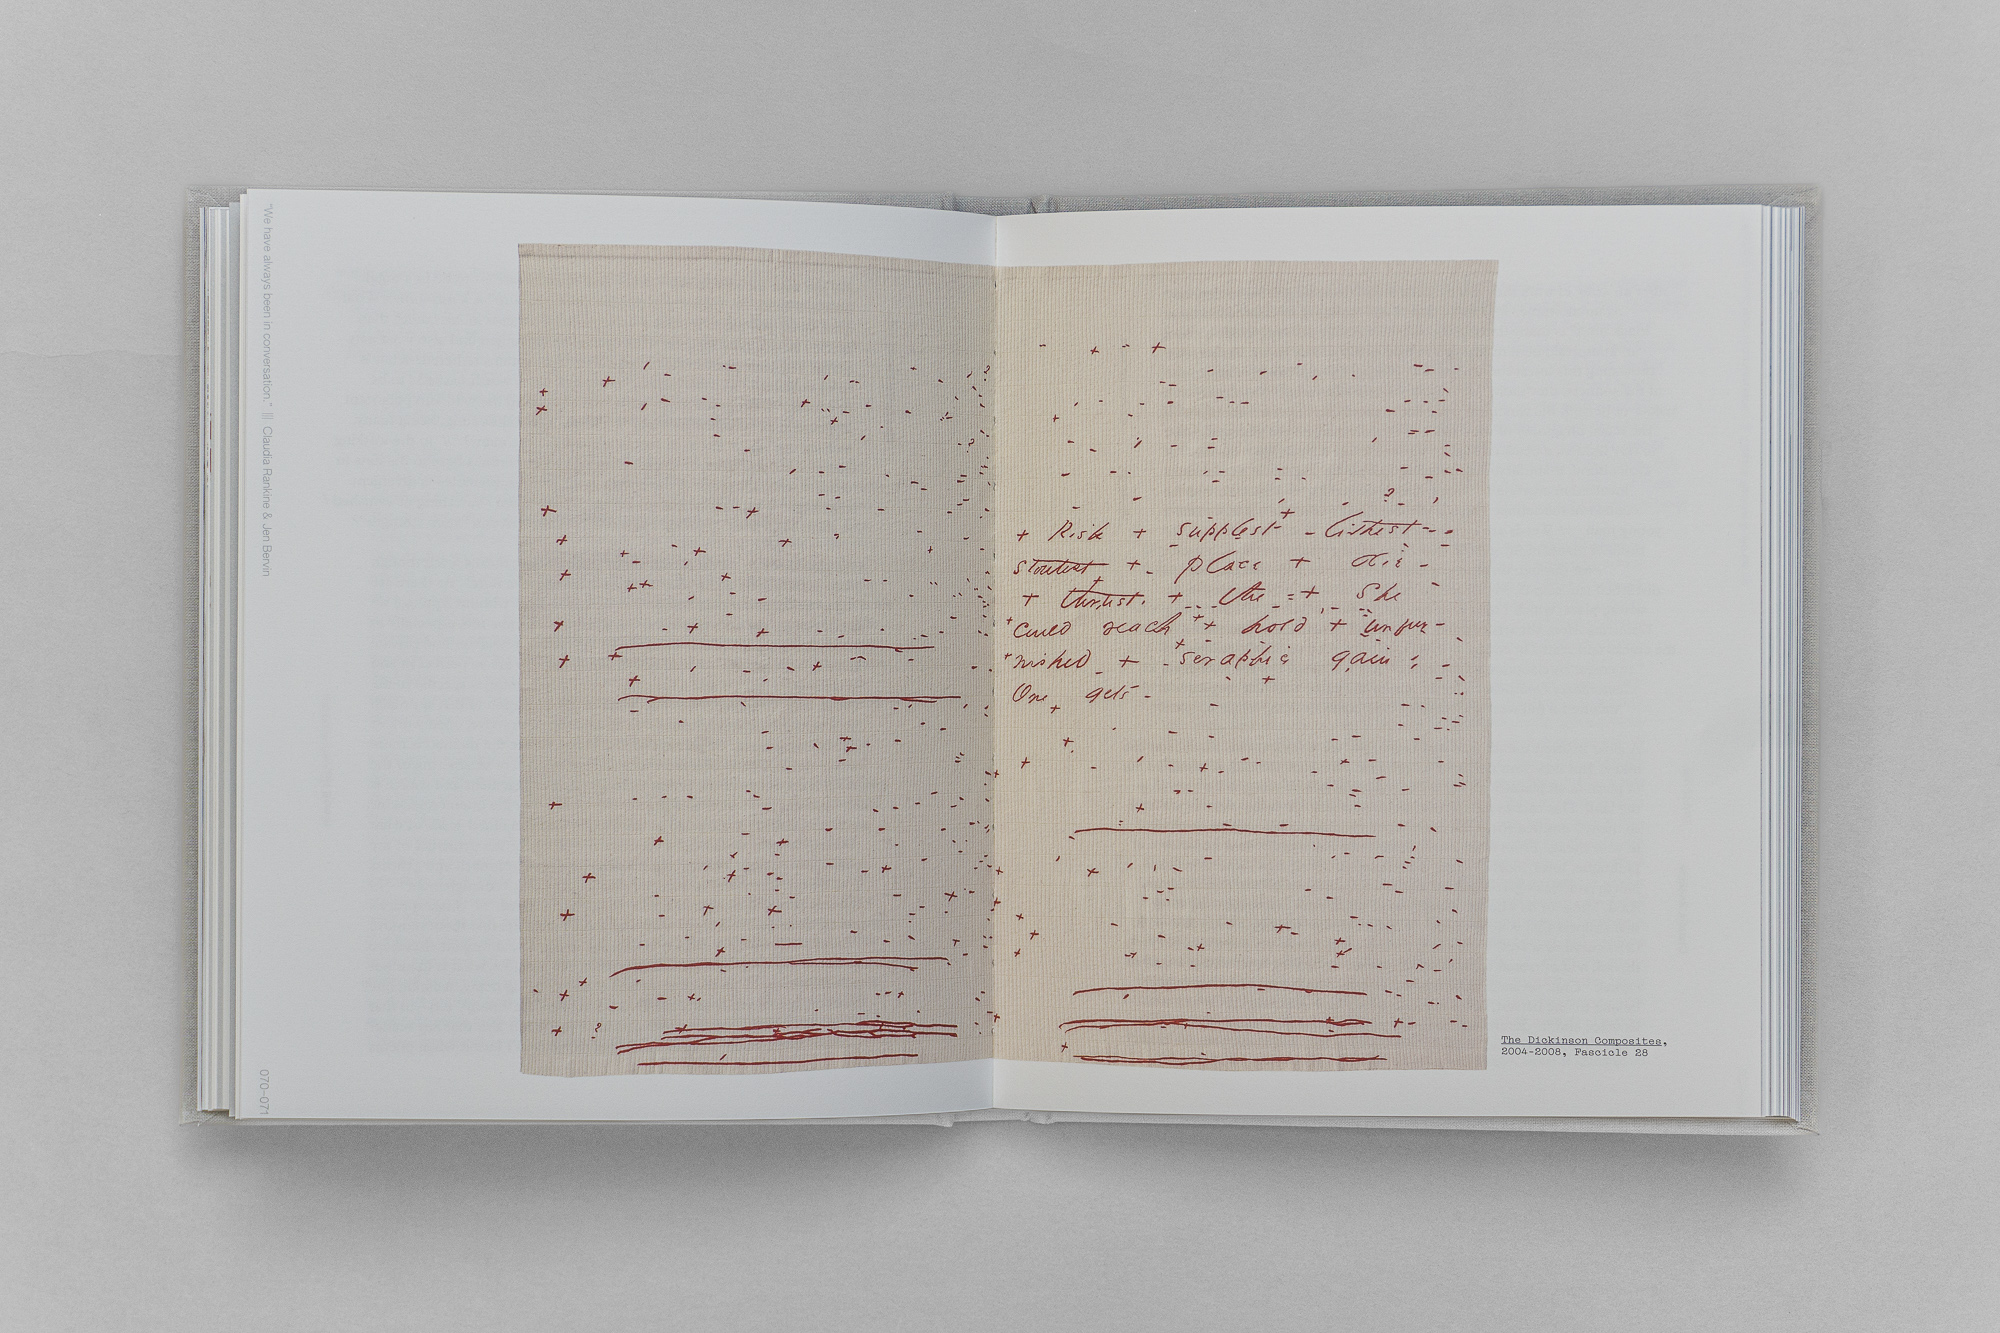 "We have always been in conversation." ||| Claudia Rankine & Jen Bervin
070–071
+ Risk + supplest - lithest -
stoutest + - place + die -
+ thirst. + the - + She
could reach + hold + unfur-
nished + - seraphic gain :
One gets -
The Dickinson Composites,
2004-2008, Fascicle 28